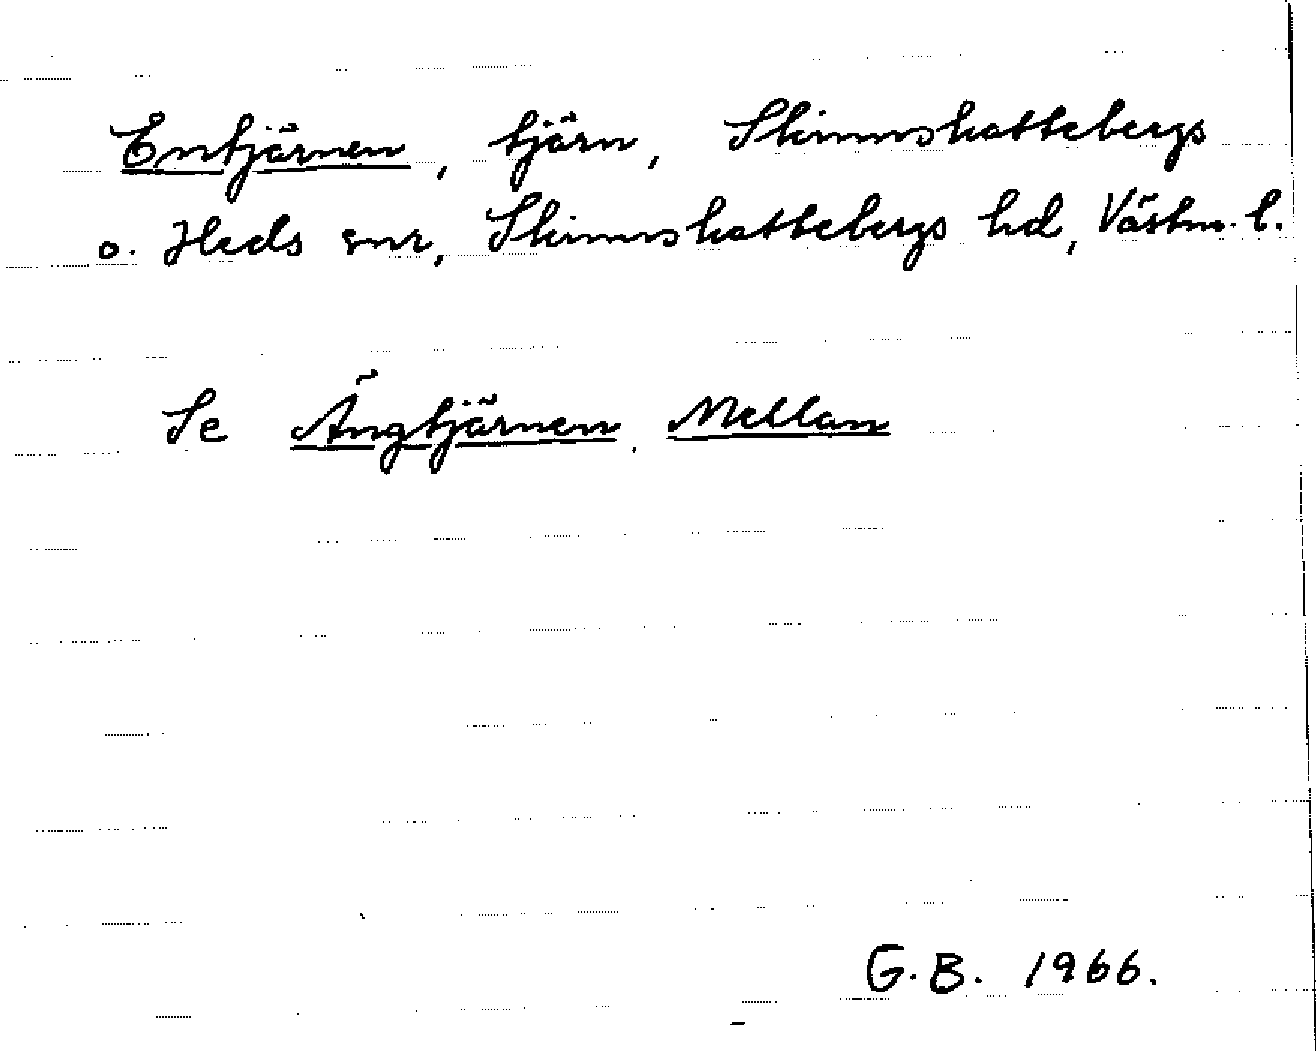 Entjärnen, tjärn, Skinnskattebergs
o. Heds snr, Skinnskattebergs hd, Västm. l.
Se Ängtjärnen, Mellan
G.B. 1966.